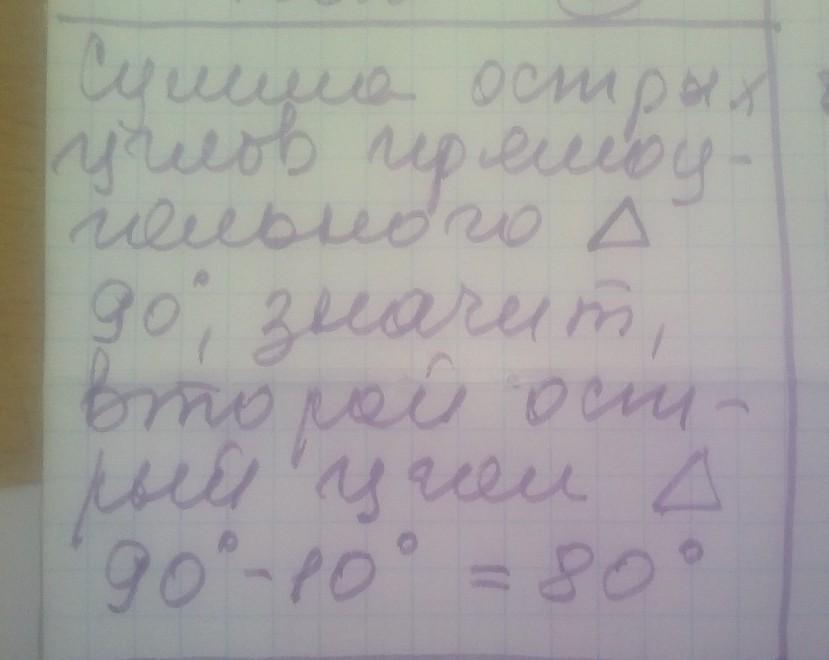 Сумма острых
углов прямоу-
гольного Δ
90°, значит,
второй ост-
рый угол Δ
90°-10° = 80°